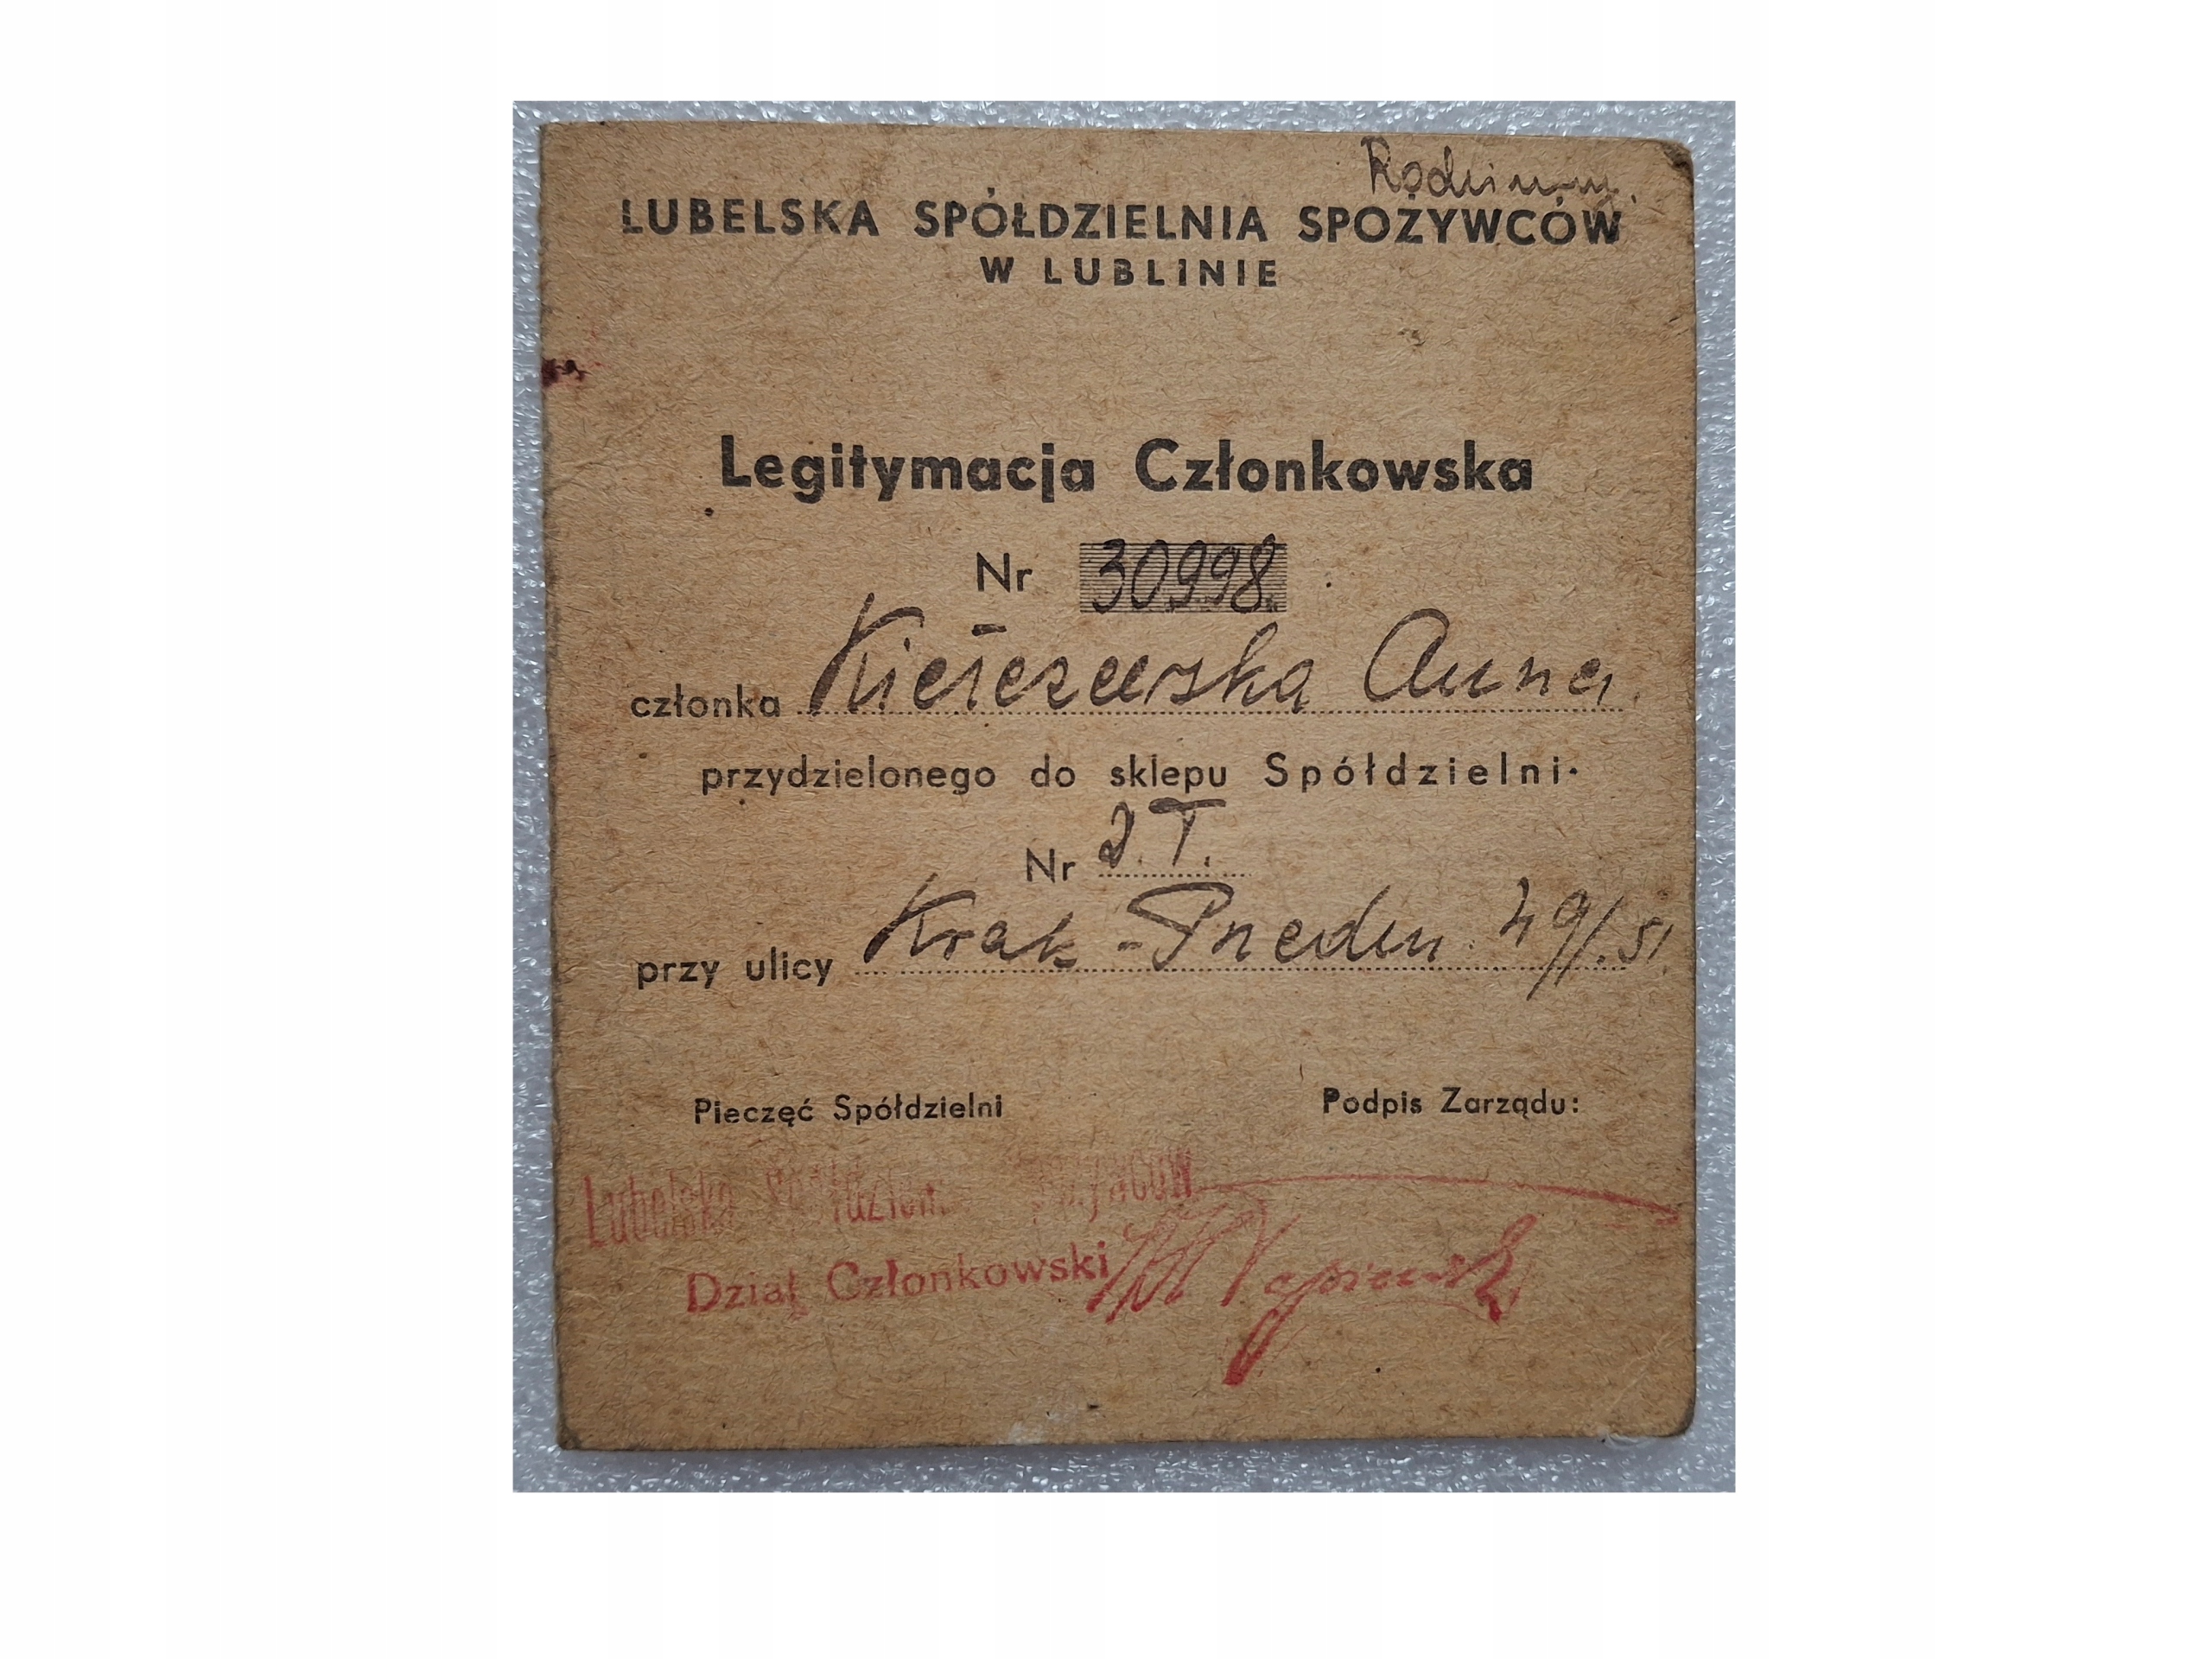 Rodzinny.
LUBELSKA SPÓŁDZIELNIA SPOŻYWCÓW
W LUBLINIE
Legitymacja Członkowska
Nr 30998.
członka Kiełczewska Anna.
przydzielonego do sklepu Spółdzielni.
Nr 2.T.
przy ulicy Krak-Przedm. 49/.51.
Pieczęć Spółdzielni Podpis Zarządu:
Lubelska
Dział Członkowski